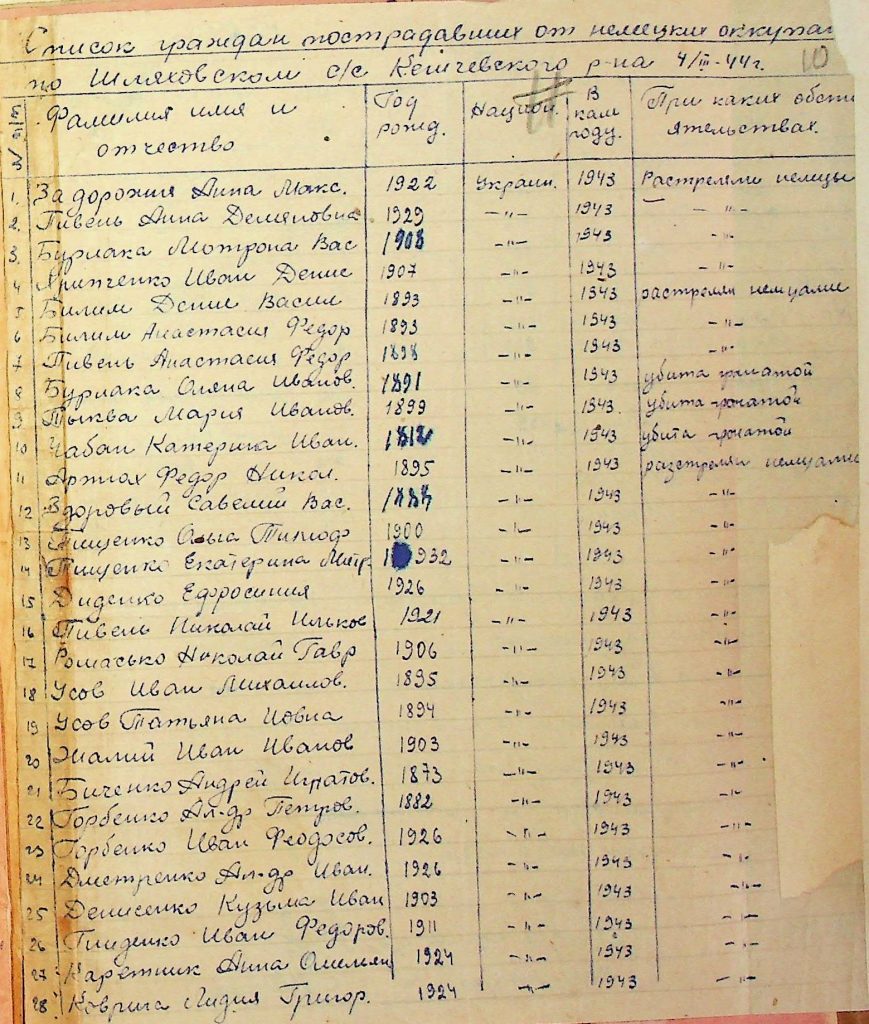 Список граждан пострадавших от немецких оккупан
по Шляховском с/с Кегичевского р-на 4/III-44 г. 10
№ п/п Фамилия имя и отчество Год рожд. Национ. В каком году. При каких обстоятельствах.
1. Задорожня Анна Макс. 1922 Украин. 1943 Растреляли немцы
2. Пивень Анна Демяновна 1929 -"- 1943 -"-
3. Бурлака Мотрона Вас 1908 -"- 1943 -"-
4 Иван Денис 1907 -"- 1943 -"-
5 Билим Денис Васил 1893 -"- 1943 растреляли немцами
6 Билим Анастасия Федор 1893 -"- 1943 -"-
7 Пивень Анастасия Федор 1898 -"- 1943 -"-
8 Бурлака Оляна Иванов. 1891 -"- 1943 убита гранатой
9 Тыква Мария Иванов. 1899 -"- 1943. убита гранатой
10 Чабан Катерина Иван. -"- 1943 убита гранатой
11 Федор Никол. 1895 -"- 1943 разстрелян немцами
12 Здоровый Савелий Вас. -"- 1943 -"-
13 Тищенко Ольга Тимоф 1900 -"- 1943 -"-
14 Тищенко Екатерина Митр. 1932 -"- 1943 -"-
15 Диденко Ефросиния 1926 -"- 1943 -"-
16 Пивень Николай Ильков 1921 -"- 1943 -"-
17 Ромасько Николай Гавр 1906 -"- 1943 -"-
18 Усов Иван Михайлов. 1895 -"- 1943 -"-
19 Усов Татьяна Иовна 1894 -"- 1943 -"-
20 Жалий Иван Иванов 1903 -"- 1943 -"-
21 Биченко Андрей Игнатов. 1873 -"- 1943 -"-
22 Горбенко Ал-др Петров. 1882 -"- 1943 -"-
23 Горбенко Иван Феодосов. 1926 -"- 1943 -"-
24 Дметренко Ал-др Иван. 1926 -"- 1943 -"-
25 Денисенко Кузьма Иван 1903 -"- 1943 -"-
26 Иван Федоров. 1911 -"- 1943 -"-
27 Каретник Анна Омельян 1924 -"- 1943 -"-
28. Коврига Лидия Григор. 1924 -"- 1943 -"-